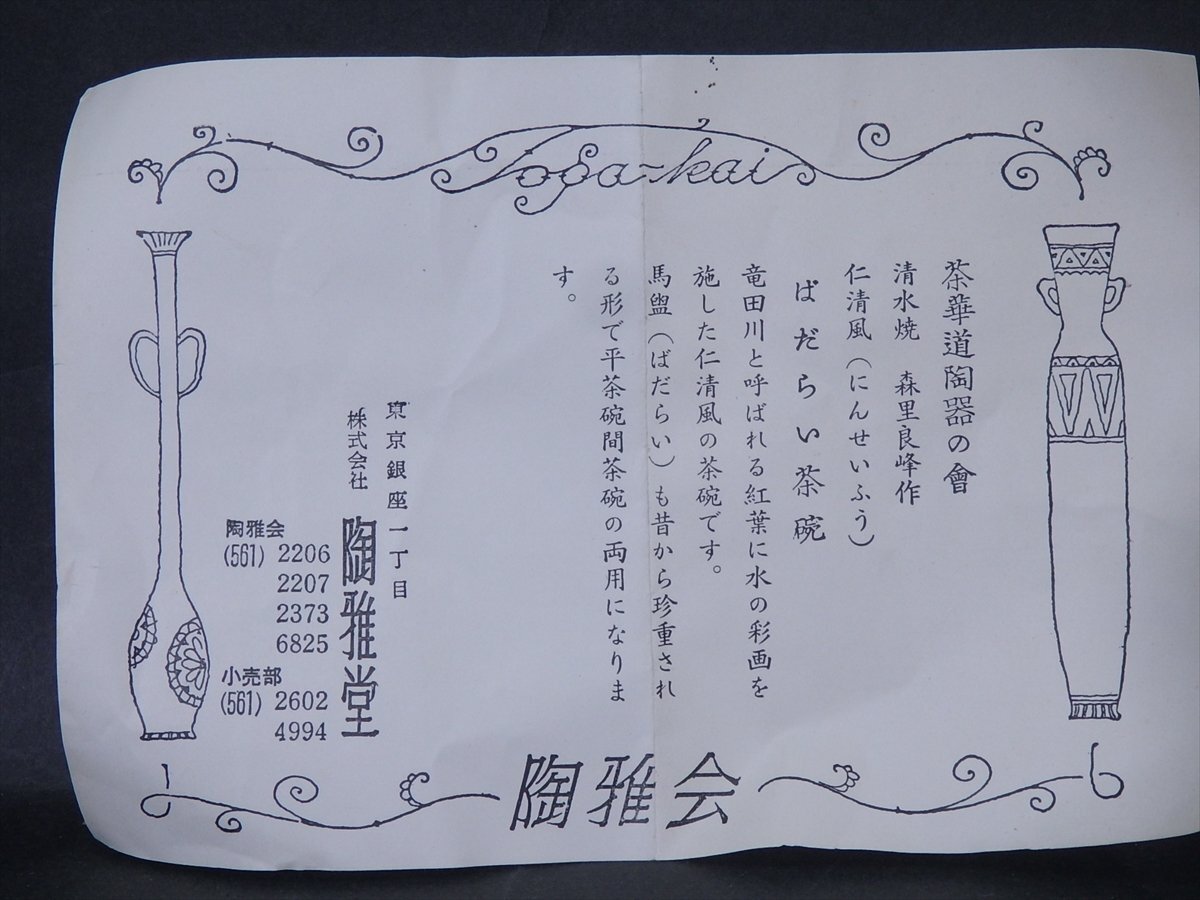 Toga-kai
茶華道陶器の會
清水焼　森里良峰作
仁清風(にんせいふう)
ばだらい茶碗
竜田川と呼ばれる紅葉に水の彩画を
施した仁清風の茶碗です。
馬盥(ばだらい)も昔から珍重され
る形で平茶碗間茶碗の両用になりま
す。
東京銀座一丁目
株式会社　陶雅堂
陶雅会
(561) 2206
2207
2373
6825
小売部
(561) 2602
4994
陶雅会